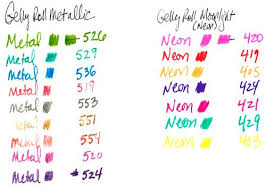 Gelly Roll Metallic
Metal 526
Metal 529
Metal 536
Metal 519
Metal 553
551
Metal 554
Metal 520
Metal 524
Gelly Roll Moonlight
(Neon)
Neon 420
Neon 419
Neon 405
Neon 424
Neon 421
Neon 404
Neon 403